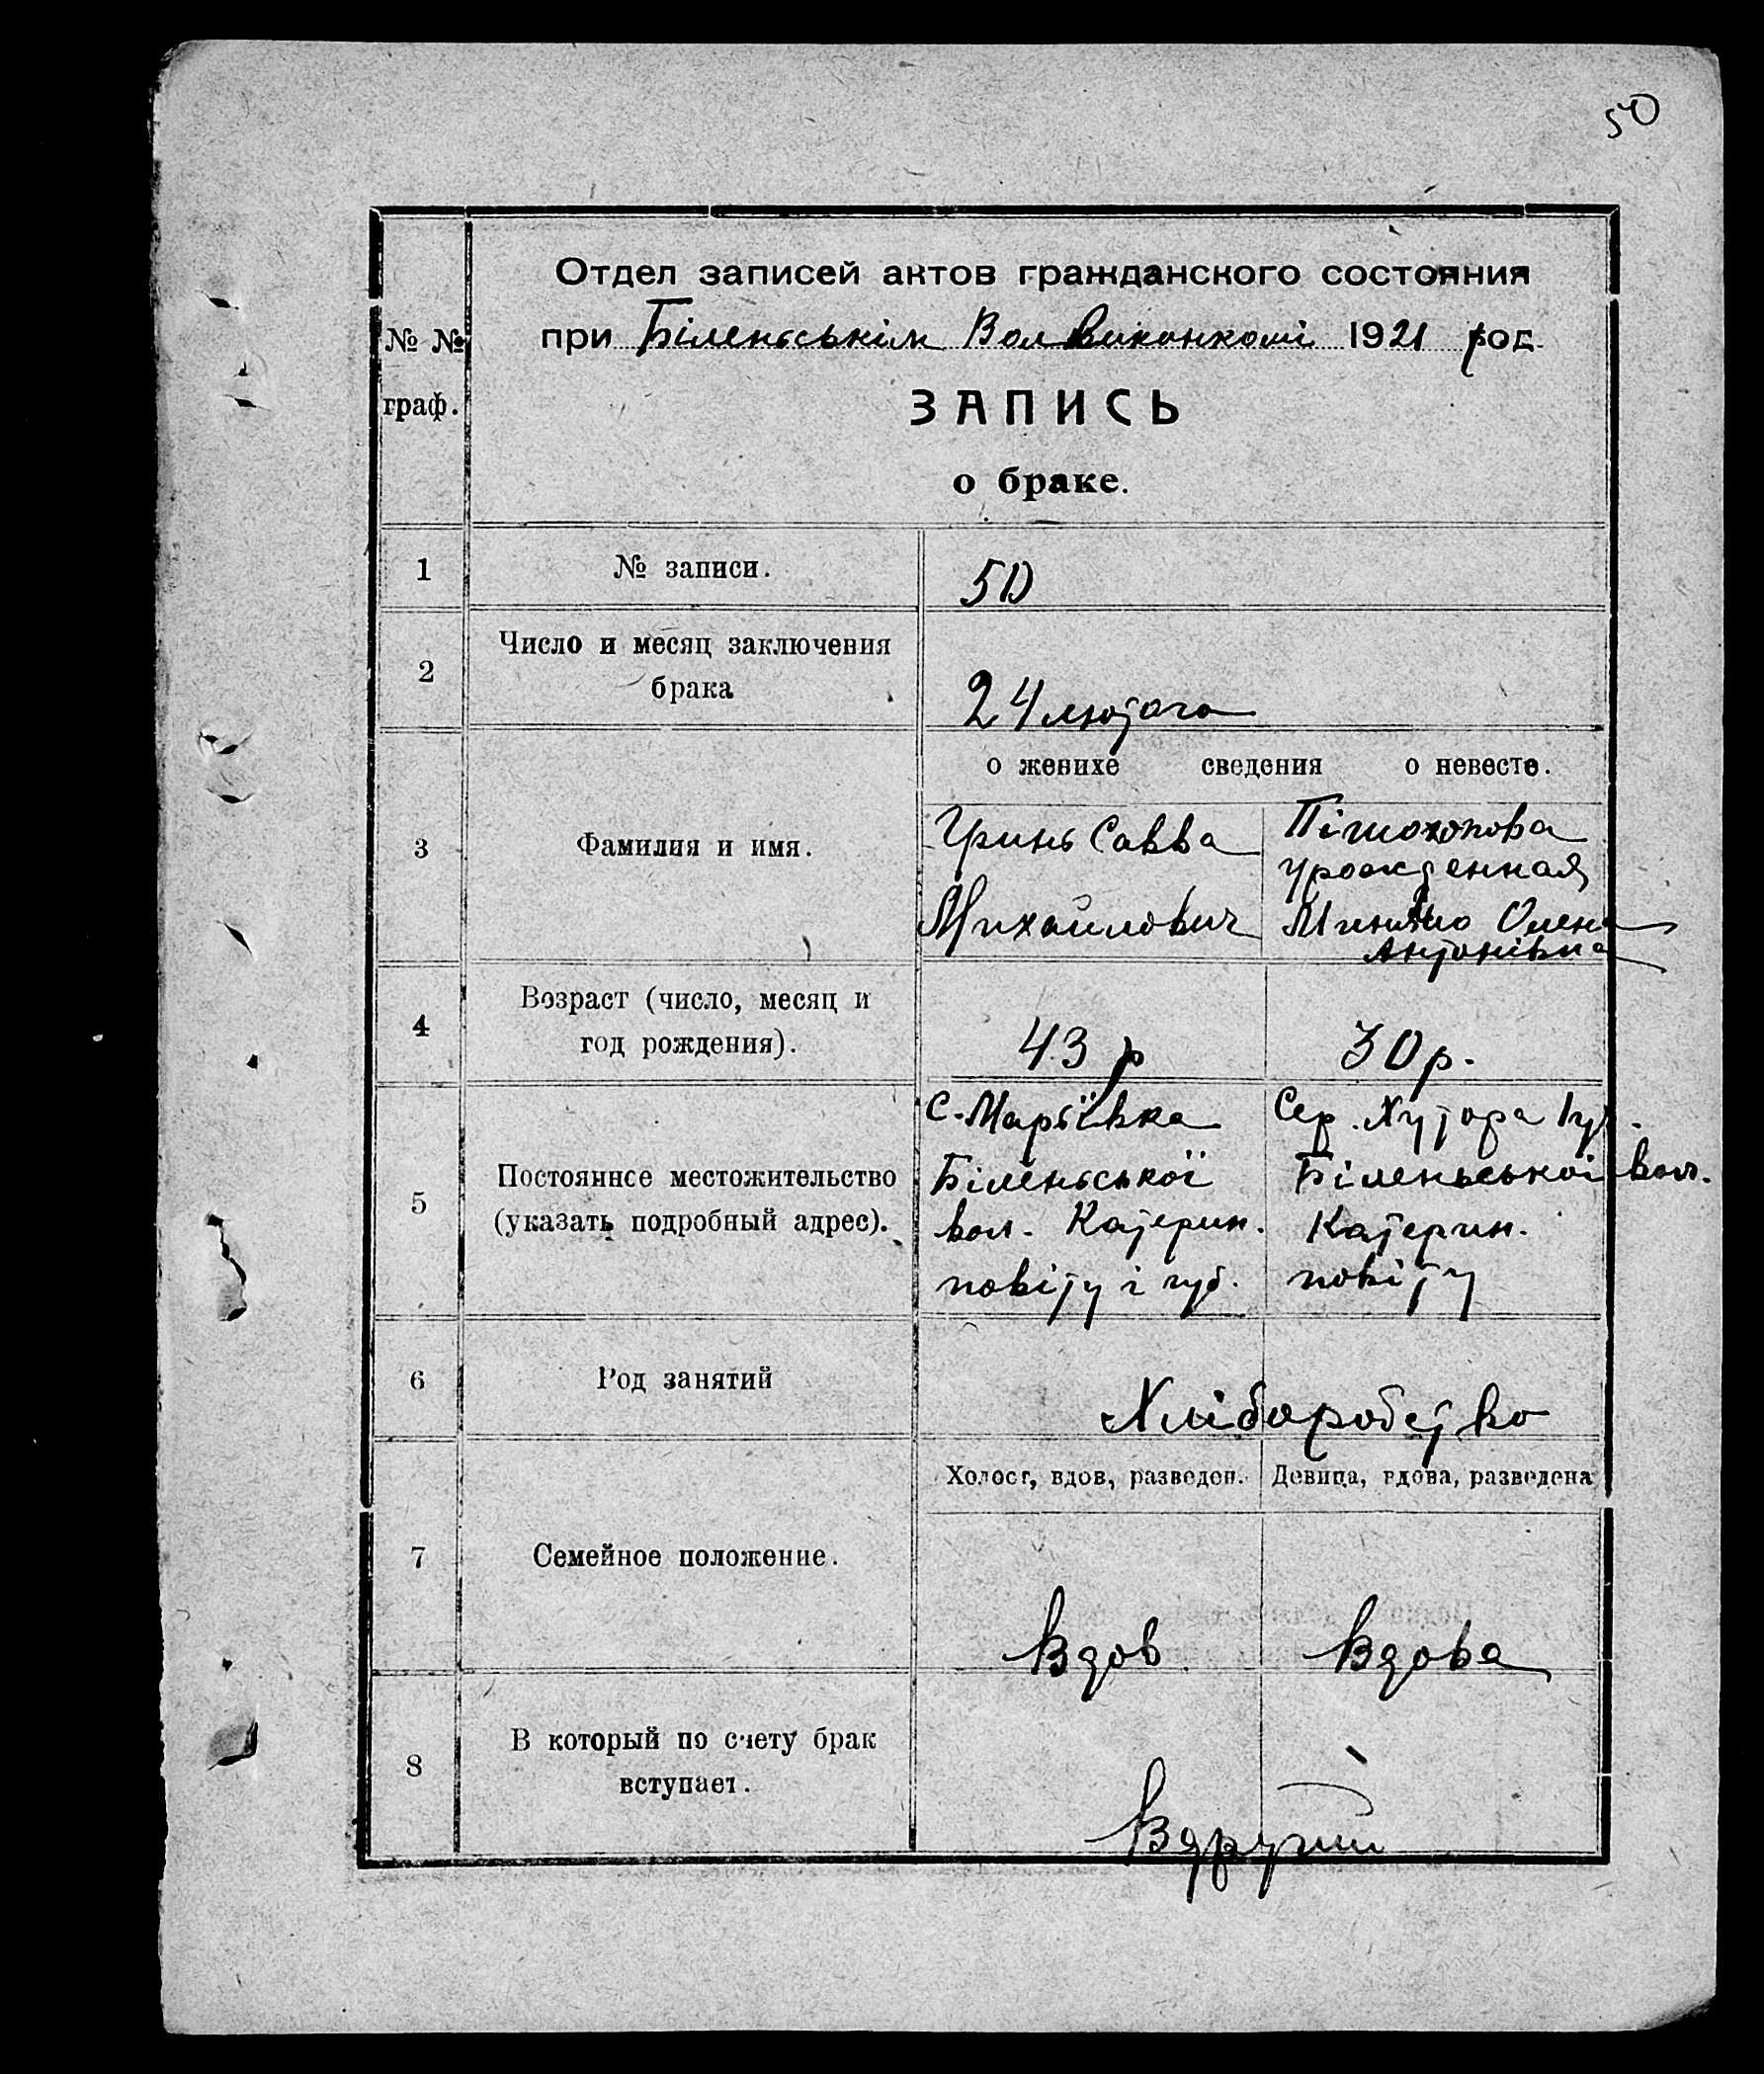 50
Отдел записей актов гражданского состояния
при Біленьськім Вол Виконкомі 1921 год
№ №
граф.
ЗАПИСЬ
о браке.
1 № записи. 50
2 Число и месяц заключения
брака
24 лютого
о женихе сведения о невесте.
3 Фамилия и имя.
Гринь Савва
Михайлович
урожденная
Олена
Антонівна
4 Возраст (число, месяц и
год рождения).
43 р 30 р.
5 Постояннсе местожительство
(указать подробный адрес).
С. Марьївка
Біленьської
вол. Катерин.
повіту і губ.
Сер. Хутора
Біленьської вол.
Катерин.
повіту
6 Род занятий
Хліборобство
7 Семейное положение.
Холост, вдов, разведен. Девица, вдова, разведена
Вдов Вдова
8 В который по счету брак
вступает.
Вдругий